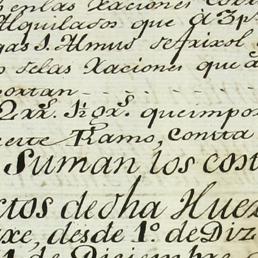 en las Raciones
Alquilados que â 3 p
gas 1. Almus de frixol
selas Raciones que
portan
2 rrs. 1½ grs. que impor
este Ramo, consta
Suman los cost
ctos de dha Huer
xe, desde 1º. de Diz
de Diciembre